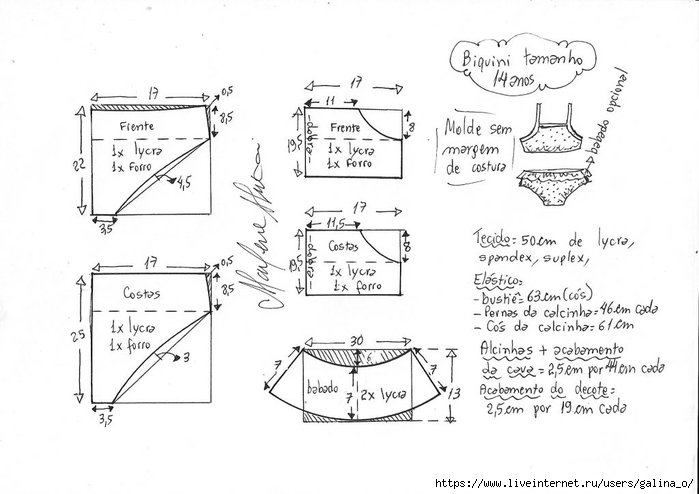 Biquini tamanho
14 anos
babado opcional
Molde sem
margem
de costura
17
0,5
8,5
Frente
1x lycra
1x forro
22
4,5
3,5
17
11
dobra
Frente
8
19,5
1x lycra
1x forro
Marlene Mukai
17
11,5
dobra
Costas
8
19,5
1x lycra
1x forro
17
0,5
8,5
Costas
1x lycra
1x forro
25
3
3,5
30
6
7
7
babado
7
2x lycra
13
Tecido = 50cm de lycra,
spandex, suplex,
Elástico:
- bustiê = 63cm (cós)
- Pernas da calcinha = 46cm cada
- Cós da calcinha = 61cm
Alcinhas + acabamento
da cava = 2,5cm por 44cm cada
Acabamento do decote:
2,5cm por 19cm cada
https://www.liveinternet.ru/users/galina_o/